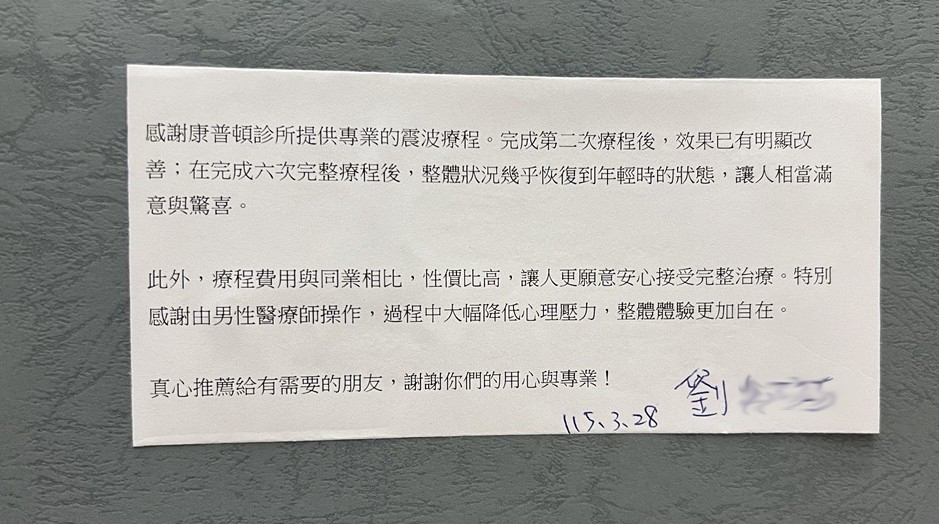 感謝康普頓診所提供專業的震波療程。完成第二次療程後，效果已有明顯改
善；在完成六次完整療程後，整體狀況幾乎恢復到年輕時的狀態，讓人相當滿
意與驚喜。
此外，療程費用與同業相比，性價比高，讓人更願意安心接受完整治療。特別
感謝由男性醫療師操作，過程中大幅降低心理壓力，整體體驗更加自在。
真心推薦給有需要的朋友，謝謝你們的用心與專業！
115.3.28 劉